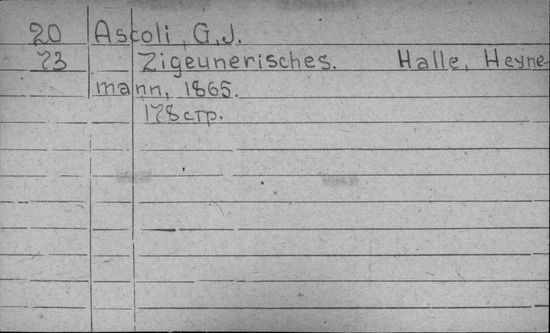 20 Ascoli, G.J.
73 Zigeunerisches. Halle, Heyne
mann, 1865.
178 стр.